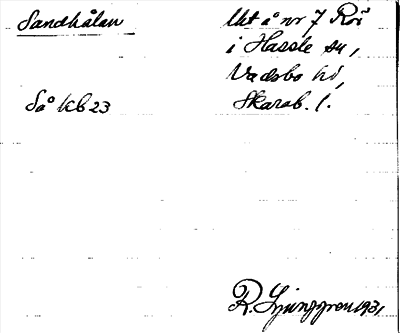 Sandhålan
Mt å nr 7 Rör
i Hassle sn,
Vadsbo hd,
Skarab. l.
Så kb 23
R. Ljunggren 1931